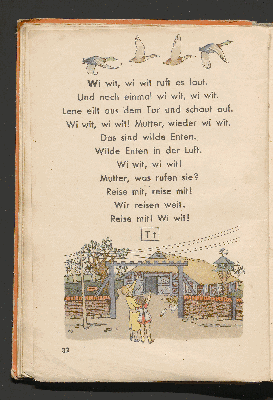 Wi wit, wi wit ruft es laut.
Und noch einmal wi wit, wi wit.
Lene eilt aus dem Tor und schaut auf.
Wi wit, wi wit! Mutter, wieder wi wit.
Das sind wilde Enten.
Wilde Enten in der Luft.
Wi wit, wi wit!
Mutter, was rufen sie?
Reise mit, reise mit!
Wir reisen weit.
Reise mit! Wi wit!
T t
32